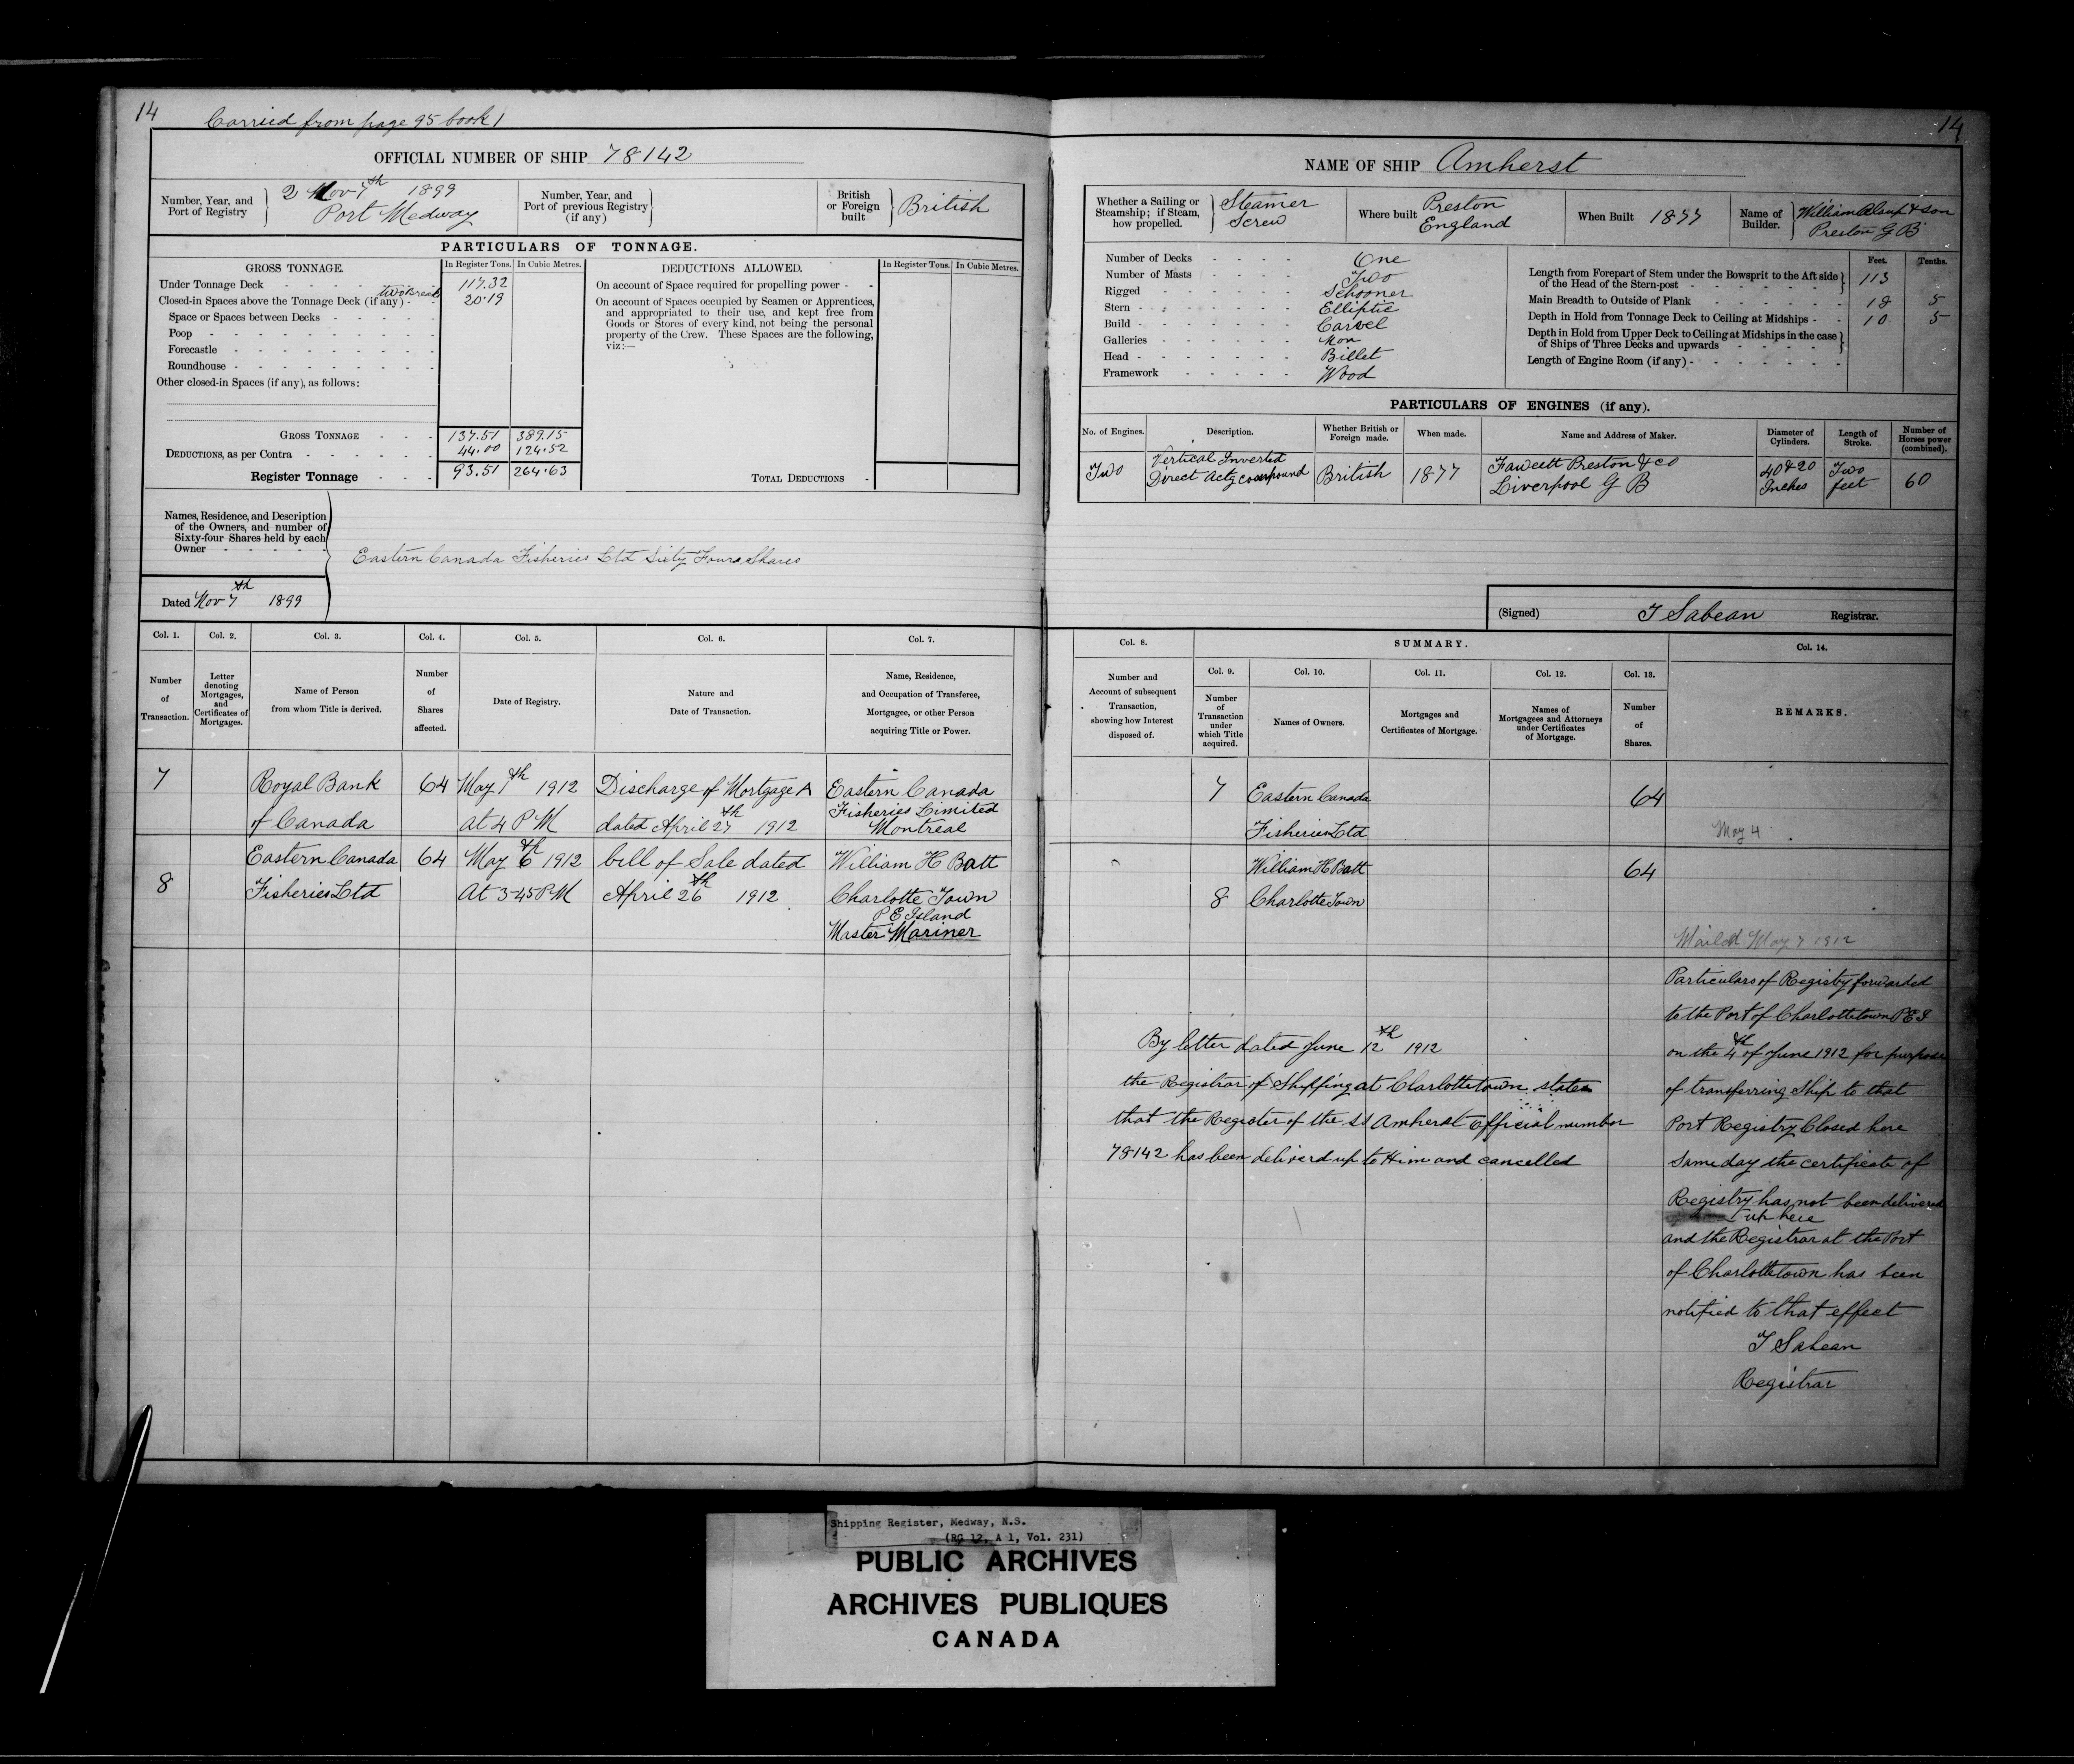 14
Carried from page 95 book 1
OFFICIAL NUMBER OF SHIP 78142
Number, Year, and
Port of Registry
2 Nov 7th 1899
Port Medway
Number, Year, and
Port of previous Registry
(if any)
British
or Foreign
built
British
PARTICULARS OF TONNAGE.
GROSS TONNAGE.
In Register Tons.
In Cubic Metres.
DEDUCTIONS ALLOWED.
In Register Tons.
In Cubic Metres.
Under Tonnage Deck
117.32
two Break
Closed-in Spaces above the Tonnage Deck (if any)
20.19
Space or Spaces between Decks
Poop
Forecastle
Roundhouse
Other closed-in Spaces (if any), as follows:
On account of Space required for propelling power
On account of Spaces occupied by Seamen or Apprentices,
and appropriated to their use, and kept free from
Goods or Stores of every kind, not being the personal
property of the Crew. These Spaces are the following,
viz:—
GROSS TONNAGE 137.51 389.15
DEDUCTIONS, as per Contra 44.00 124.52
Register Tonnage 93.51 264.63
TOTAL DEDUCTIONS
Names, Residence, and Description
of the Owners, and number of
Sixty-four Shares held by each
Owner
Eastern Canada Fisheries Ltd Sixty Four Shares
Dated Nov 7th 1899
Col. 1.
Col. 2.
Col. 3.
Col. 4.
Col. 5.
Col. 6.
Col. 7.
Number
of
Transaction.
Letter
denoting
Mortgages,
and
Certificates of
Mortgages.
Name of Person
from whom Title is derived.
Number
of
Shares
affected.
Date of Registry.
Nature and
Date of Transaction.
Name, Residence,
and Occupation of Transferee,
Mortgagee, or other Person
acquiring Title or Power.
7 Royal Bank 64 May 7th 1912 Discharge of Mortgage A Eastern Canada
Fisheries Limited
of Canada at 4 PM dated April 27th 1912 Montreal
Eastern Canada 64 May 6th 1912 bill of Sale dated William H Batt
8 Fisheries Ltd At 3-45 PM April 26th 1912 Charlotte Town
P E Island
Master Mariner
14
NAME OF SHIP Amherst
Whether a Sailing or
Steamship; if Steam,
how propelled.
Steamer
Screw
Where built
Preston
England
When Built 1877
Name of
Builder.
William Alsup & Son
Preston G B
Number of Decks One
Number of Masts Two
Rigged Schooner
Stern Elliptic
Build Carvel
Galleries Non
Head Billet
Framework Wood
Feet.
Tenths.
Length from Forepart of Stem under the Bowsprit to the Aft side
of the Head of the Stern-post
113
Main Breadth to Outside of Plank 18 5
Depth in Hold from Tonnage Deck to Ceiling at Midships 10 5
Depth in Hold from Upper Deck to Ceiling at Midships in the case
of Ships of Three Decks and upwards
Length of Engine Room (if any)
PARTICULARS OF ENGINES (if any).
No. of Engines.
Description.
Whether British or
Foreign made.
When made.
Name and Address of Maker.
Diameter of
Cylinders.
Length of
Stroke.
Number of
Horses power
(combined).
Two
Vertical Inverted
Direct Actg compound
British
1877
Fawcett Preston & Co
Liverpool G B
40 & 20
Inches
Two
feet
60
(Signed) T Sabean Registrar.
Col. 8.
SUMMARY.
Col. 14.
Number and
Account of subsequent
Transaction,
showing how Interest
disposed of.
Col. 9.
Number
of
Transaction
under
which Title
acquired.
Col. 10.
Names of Owners.
Col. 11.
Mortgages and
Certificates of Mortgage.
Col. 12.
Names of
Mortgagees and Attorneys
under Certificates
of Mortgage.
Col. 13.
Number
of
Shares.
REMARKS.
7 Eastern Canada 64
Fisheries Ltd May 4
William H Batt 64
8 Charlotte Town
Mailed May 7 1912
By letter dated June 12th 1912
the Registrar of Shipping at Charlottetown states
that the Register of the SS Amherst Official number
78142 has been deliverd up to Him and cancelled
Particulars of Registry forwarded
to the Port of Charlottetown P E I
on the 4th of June 1912 for purpose
of transferring Ship to that
Port Registry Closed here
Same day the certificate of
Registry has not been delivered
up here
and the Registrar at the Port
of Charlottetown has been
notified to that effect
T Sabean
Registrar
Shipping Register, Medway, N.S.
(RG 12, A 1, Vol. 231)
PUBLIC ARCHIVES
ARCHIVES PUBLIQUES
CANADA